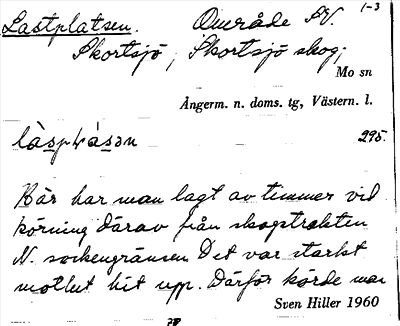 Lastplatsen. Område SV. 1-3
Skortsjö, Skortsjö skog,
Mo sn
Ångerm. n. doms. tg, Västern. l.
295.
Här har man lagt av timmer vid
körning därav från skogstrakten
N. sockengränsen Det var starkt
motlut hit upp. Därför körde man
Sven Hiller 1960